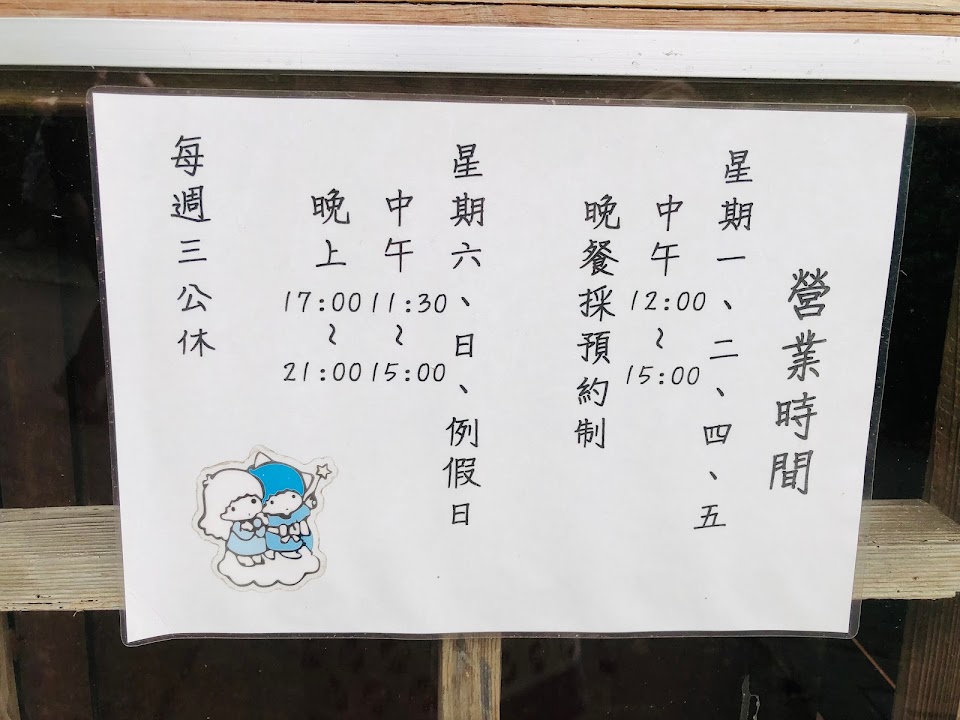 營業時間
星期一、二、四、五
中午12:00~15:00
晚餐採預約制
星期六、日、例假日
中午11:30~15:00
晚上17:00~21:00
每週三公休